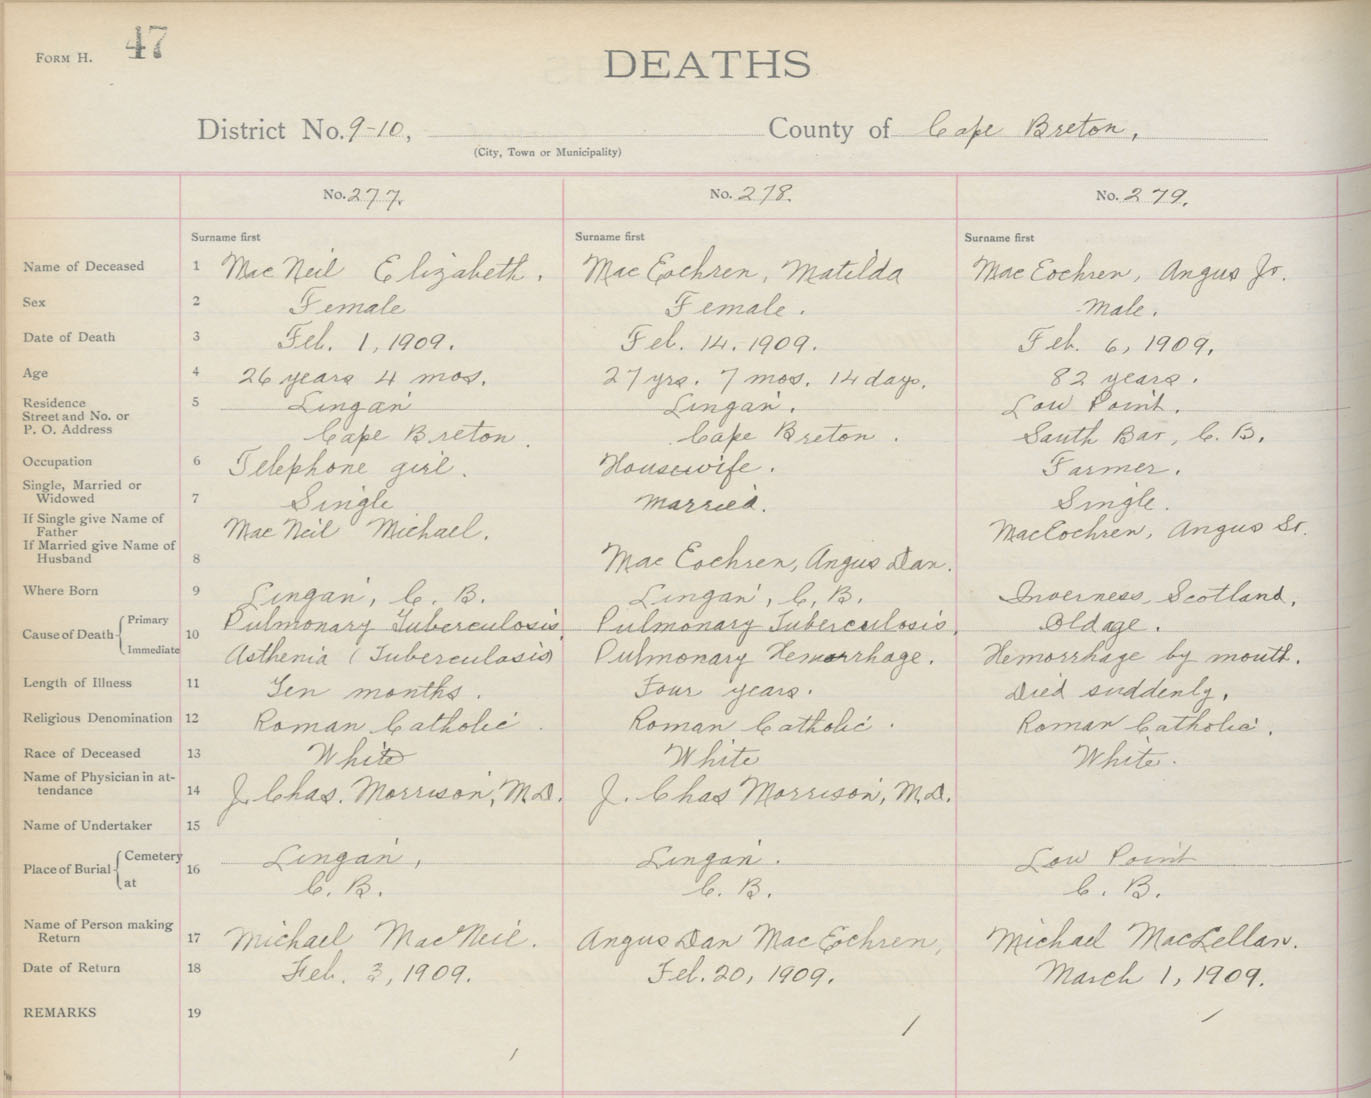 FORM H. 47
DEATHS
District No. 9-10, County of Cape Breton,
(City, Town or Municipality)
No. 277. No. 278. No. 279.
Surname first Surname first Surname first
Name of Deceased 1 MacNeil Elizabeth. MacEochren, Matilda MacEochren, Angus Jr.
Sex 2 Female Female. Male.
Date of Death 3 Feb. 1, 1909. Feb. 14. 1909. Feb. 6, 1909.
Age 4 26 years 4 mos. 27 yrs. 7 mos. 14 days. 82 years.
Residence 5 Lingan Lingan. Low Point.
Street and No. or
P. O. Address Cape Breton. Cape Breton. South Bar, C. B.
Occupation 6 Telephone girl. Housewife. Farmer.
Single, Married or
Widowed 7 Single Married. Single.
If Single give Name of
Father MacNeil Michael. MacEochren, Angus Sr.
If Married give Name of
Husband 8 MacEochren, Angus Dan.
Where Born 9 Lingan, C. B. Lingan, C. B. Inverness, Scotland.
Cause of Death Primary 10 Pulmonary Tuberculosis. Pulmonary Tuberculosis. Old age.
Immediate Asthenia (Tuberculosis) Pulmonary Hemorrhage. Hemorrhage by mouth.
Length of Illness 11 Ten months. Four years. Died suddenly.
Religious Denomination 12 Roman Catholic. Roman Catholic. Roman Catholic.
Race of Deceased 13 White White White.
Name of Physician in at-
tendance 14 J. Chas. Morrison, M.D. J. Chas Morrison, M.D.
Name of Undertaker 15
Place of Burial Cemetery 16 Lingan, Lingan. Low Point
at C. B. C. B. C. B.
Name of Person making
Return 17 Michael MacNeil. Angus Dan MacEochren, Michael MacLellan.
Date of Return 18 Feb. 3, 1909. Feb. 20, 1909. March 1, 1909.
REMARKS 19